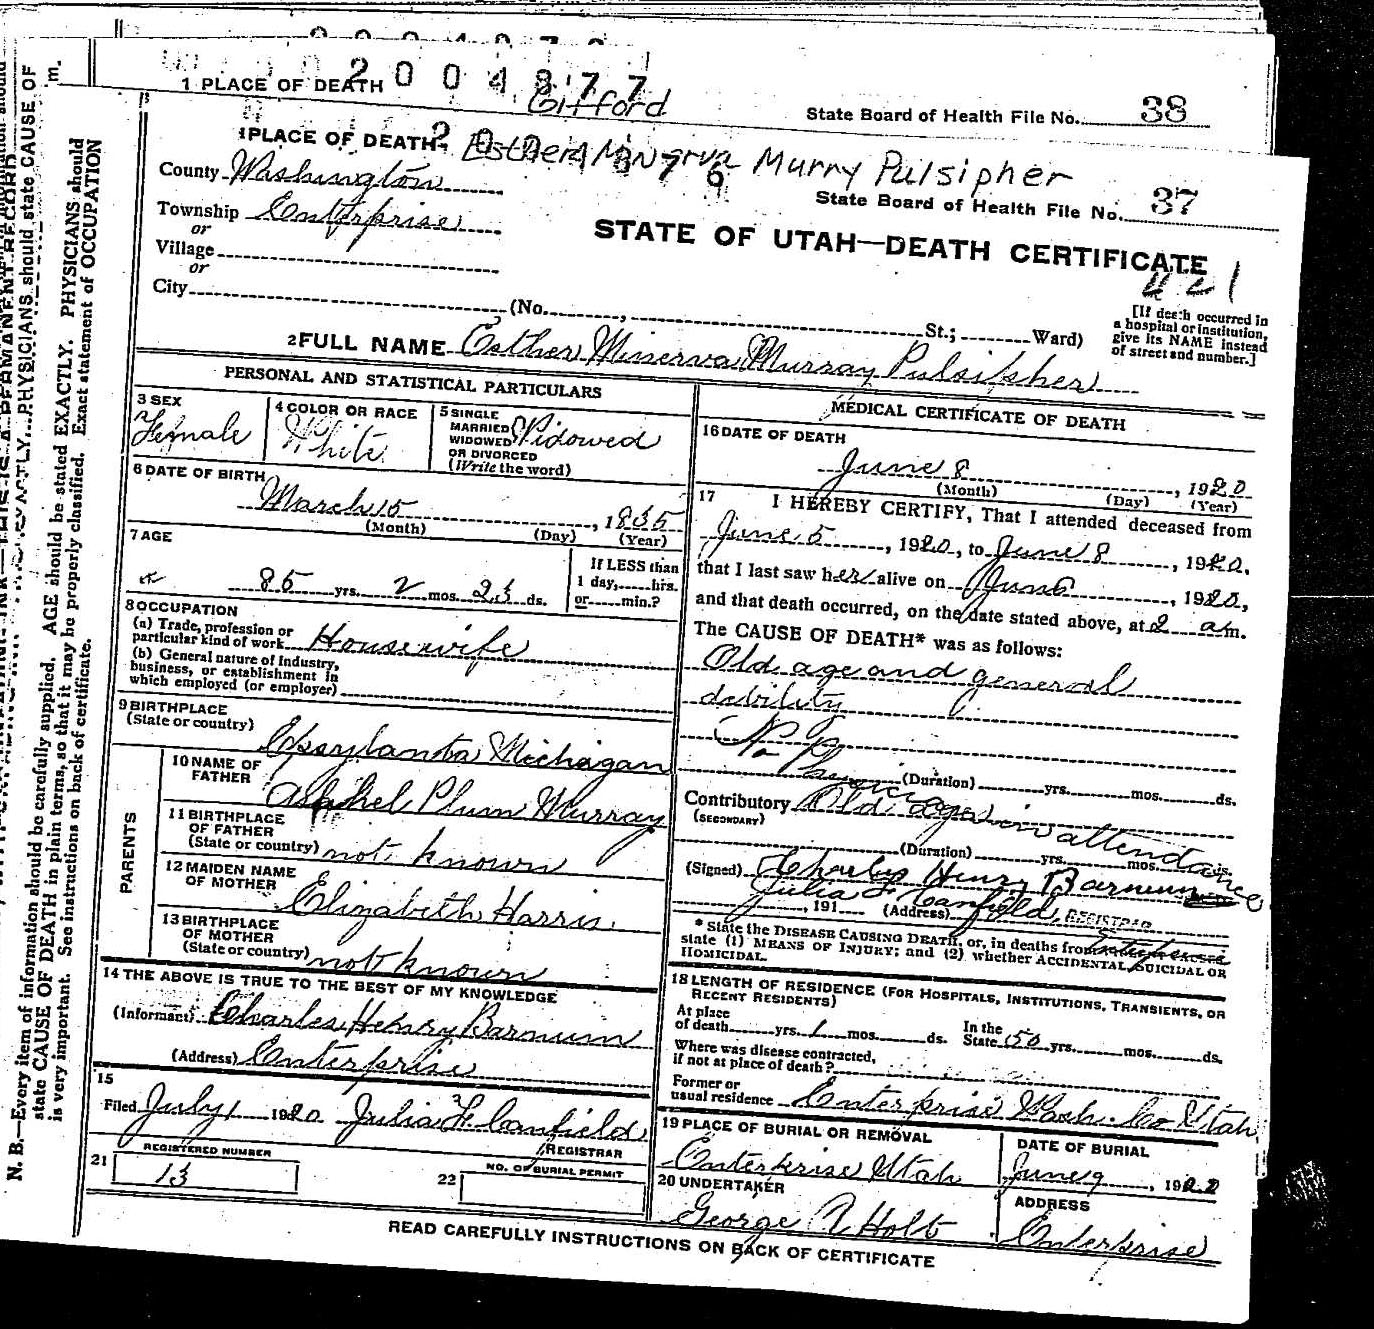 2004877
1 PLACE OF DEATH
Gifford
State Board of Health File No. 38
1 PLACE OF DEATH
2004876
Esther Minerva Murry Pulsipher
County Washington
State Board of Health File No. 37
Township Enterprise
or
Village
or
City
STATE OF UTAH—DEATH CERTIFICATE
421
(No. , St.; Ward)
[If death occurred in
a hospital or institution,
give its NAME instead
of street and number.]
2 FULL NAME Esther Minerva Murray Pulsipher
PERSONAL AND STATISTICAL PARTICULARS
3 SEX
Female
4 COLOR OR RACE
White
5 SINGLE
MARRIED
WIDOWED
OR DIVORCED
(Write the word)
Widowed
6 DATE OF BIRTH
March 15, 1835
(Month) (Day) (Year)
7 AGE
85 yrs. 2 mos. 23 ds.
If LESS than
1 day, hrs.
or min.?
8 OCCUPATION
(a) Trade, profession or
particular kind of work Housewife
(b) General nature of Industry,
business, or establishment in
which employed (or employer)
9 BIRTHPLACE
(State or country)
Epsylanta Michagan
PARENTS
10 NAME OF
FATHER
Asahel Plum Murray
11 BIRTHPLACE
OF FATHER
(State or country) not known
12 MAIDEN NAME
OF MOTHER
Elizabeth Harris.
13 BIRTHPLACE
OF MOTHER
(State or country) not known
14 THE ABOVE IS TRUE TO THE BEST OF MY KNOWLEDGE
(Informant) Charles Henry Barnum
(Address) Enterprise
15
Filed July 1 1920 Julia F. Canfield
REGISTRAR
21
REGISTERED NUMBER
13
22
NO. OF BURIAL PERMIT
MEDICAL CERTIFICATE OF DEATH
16 DATE OF DEATH
June 8, 1920
(Month) (Day) (Year)
17 I HEREBY CERTIFY, That I attended deceased from
June 5, 1920, to June 8, 1920.
that I last saw her alive on June, 1920,
and that death occurred, on the date stated above, at 2 am.
The CAUSE OF DEATH* was as follows:
Old age and general
dability
No Physician in attendance
(Duration) yrs. mos. ds.
Contributory Old age
(SECONDARY)
(Duration) yrs. mos. ds.
(Signed) Charles Henry Barnum
Julia F Canfield, REGISTRAR
, 191 (Address) Enterprise
* State the DISEASE CAUSING DEATH, or, in deaths from
state (1) MEANS OF INJURY; and (2) whether ACCIDENTAL, SUICIDAL OR
HOMICIDAL.
18 LENGTH OF RESIDENCE (FOR HOSPITALS, INSTITUTIONS, TRANSIENTS, OR
RECENT RESIDENTS)
At place
of death yrs. 1 mos. ds.
In the
State 50 yrs. mos. ds.
Where was disease contracted,
if not at place of death?
Former or
usual residence Enterprise Wash. Co Utah
19 PLACE OF BURIAL OR REMOVAL
Enterprise Utah
DATE OF BURIAL
June 9, 1920
20 UNDERTAKER
George A Holt
ADDRESS
Enterprise
READ CAREFULLY INSTRUCTIONS ON BACK OF CERTIFICATE
N. B.—Every item of information should be carefully supplied. AGE should be stated EXACTLY. PHYSICIANS should
state CAUSE OF DEATH in plain terms, so that it may be properly classified. Exact statement of OCCUPATION
is very important. See instructions on back of certificate.